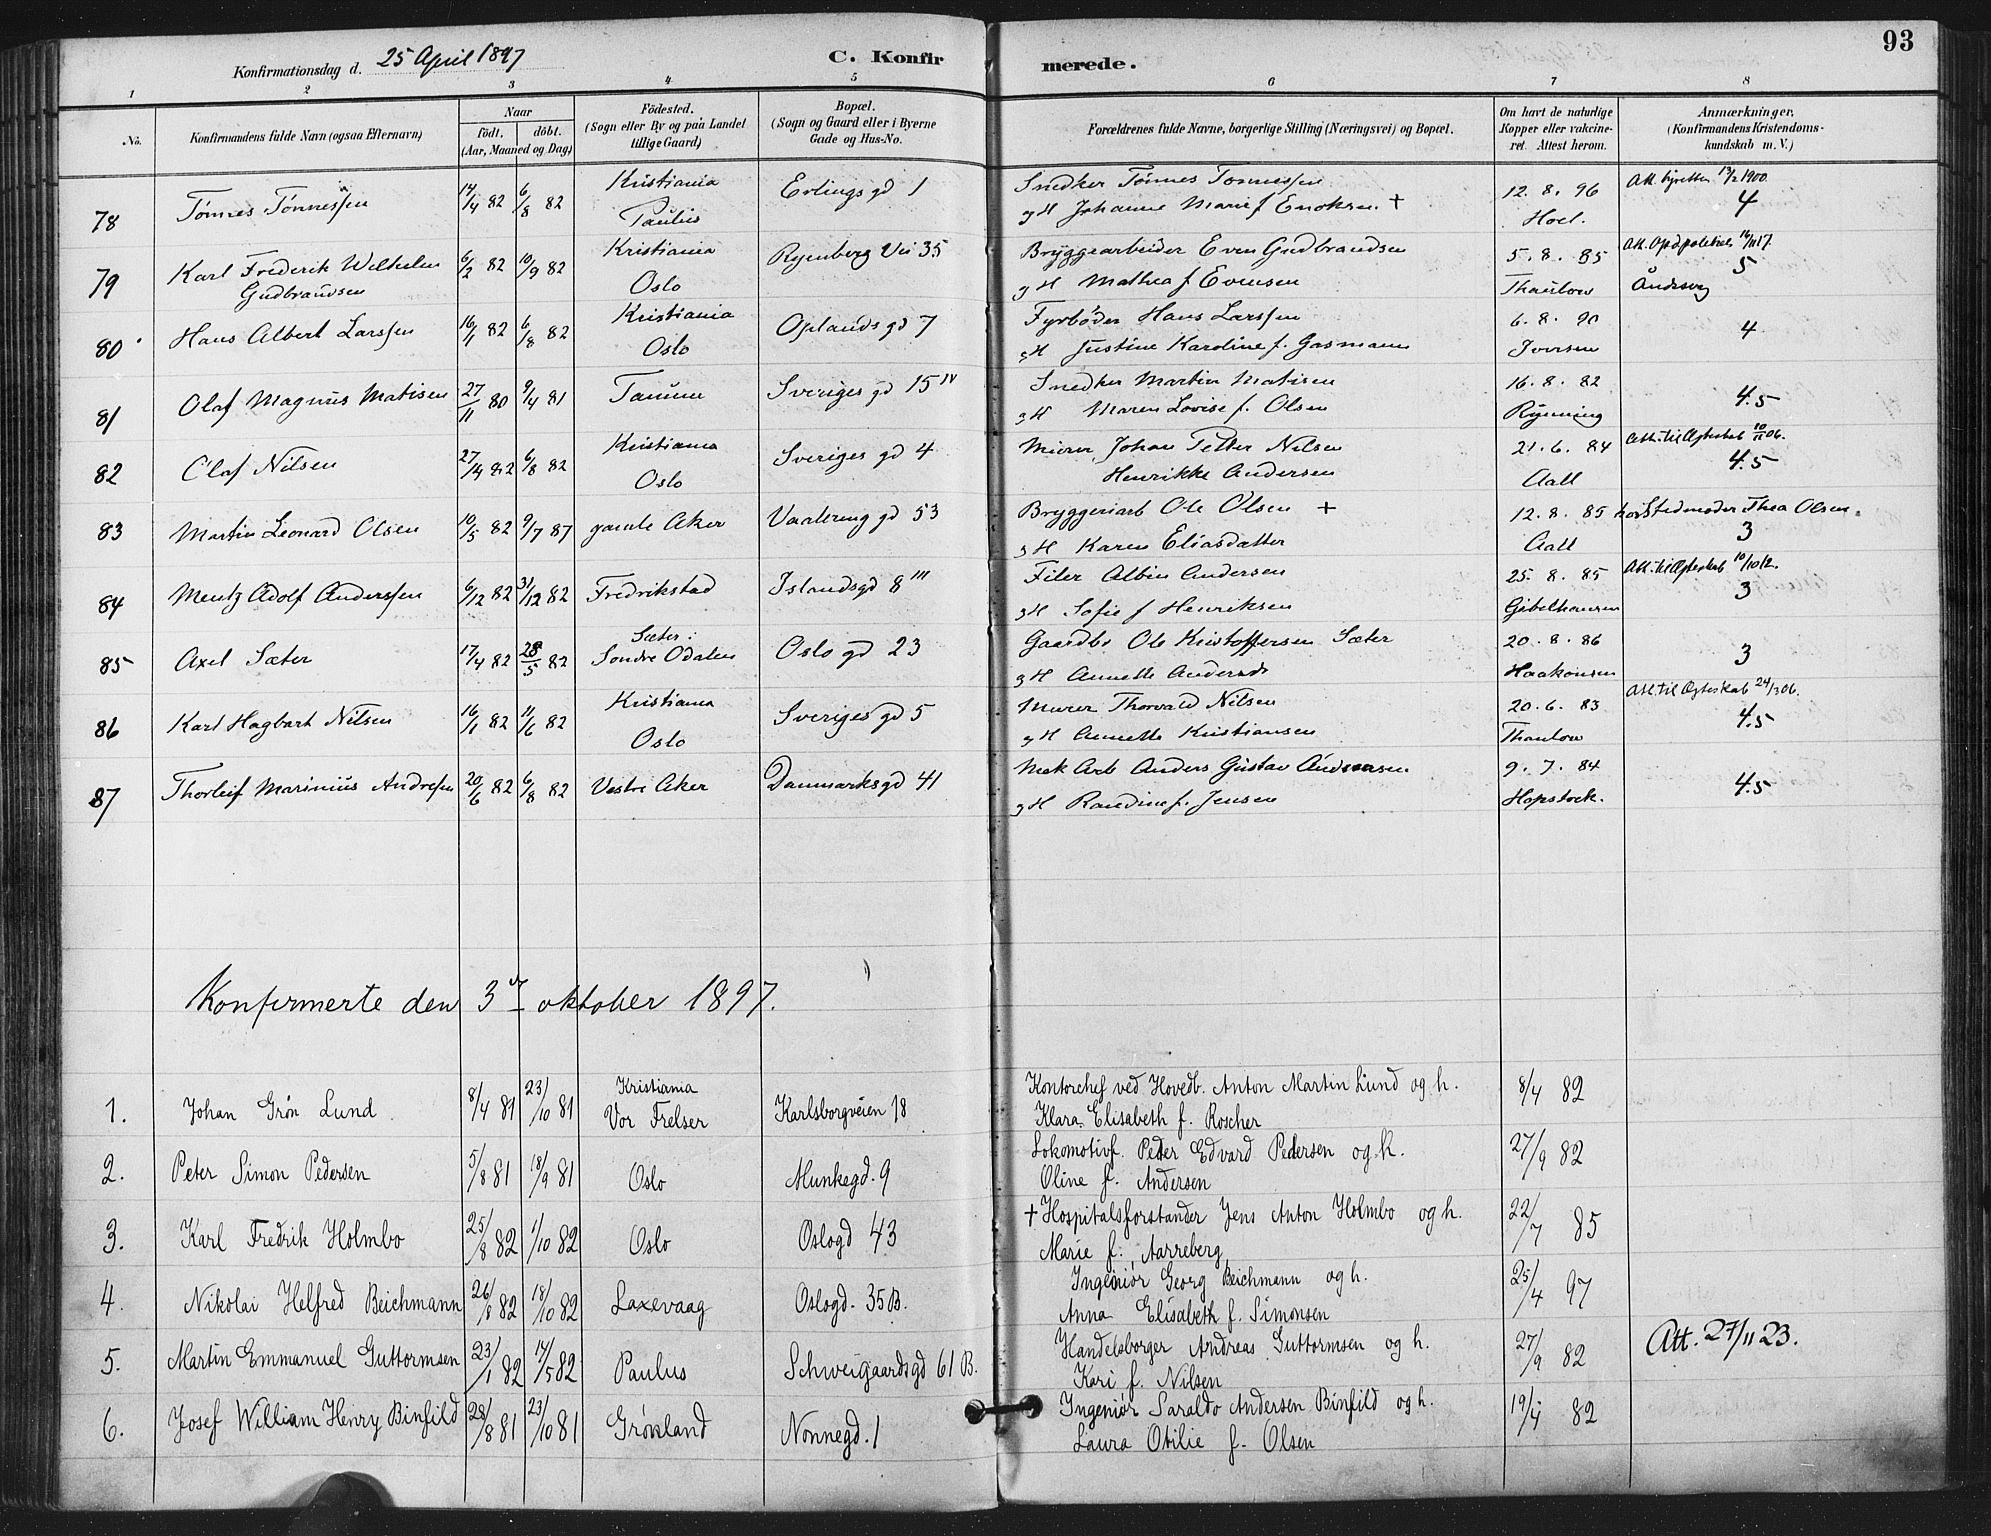 93
Konfirmationsdag d. 25 April 1897 C. Konfirmerede.
1 2 3 4 5 6 7 8
No. Konfirmandens fulde Navn (ogsaa Efternavn) Naar født. døbt. (Aar, Maaned og Dag) Fødested. (Sogn eller By og paa Landet tillige Gaard) Bopæl. (Sogn og Gaard eller i Byerne Gade og Hus-No. Forældrenes fulde Navne, borgerlige Stilling (Næringsvei) og Bopæl. Om havt de naturlige Kopper eller vakcineret. Attest herom. Anmærkninger, (Konfirmandens Kristendomskundskab m. V.)
78 Tønnes Tønnessen 14/4 82 6/8 82 Kristiania Paulus Erlings gd 1 Snedker Tønnes Tønnessen
g H Johanne Marie f Enoksen + 12. 8. 96 Hoel. 13/2 1900 4
79 Karl Frederik Wilhelm Gudbrandsen 6/2 82 10/9 82 Kristiania Oslo Ryenberg Vei 35 Bryggearbeider Even Gudbrandsen
g H Mathea f Evensen 5. 8. 85 Thaulow Att. 5
80 Hans Albert Larssen 16/1 82 6/8 82 Kristiania Oslo Oplands gd 7 Fyrbøder Hans Larssen
g H Justine Karoline f. Gasmann 6. 8. 90 Iversen 4
81 Olaf Magnus Matisen 27/11 80 9/4 81 Tanum Sveriges gd 15 IV Snedker Martin Matisen
g H Maren Lovise f. Olsen 16. 8. 82 Rynning 4.5
82 Olaf Nilsen 27/4 82 6/8 82 Kristiania Oslo Sveriges gd 4 Murer Johan Petter Nilsen
Henrikke Andersen 21. 6. 84 Aall Att. til Ægteskab 10/11 06. 4.5
83 Martin Leonard Olsen 10/5 82 9/7 87 gamle Aker Vaalereng gd 53 Bryggeriarb Ole Olsen +
g H Karen Eliasdatter 12. 8. 85 Aall hos Stedmoder Thea Olsen. 3
84 Mentz Adolf Anderssen 6/12 82 31/12 82 Fredrikstad Islandsgd 8 III Filer Albin Andersen
g H Sofie f Henriksen 25. 8. 85 Gibelhausen Att. til Ægteskab 10/10 12. 3
85 Axel Sæter 17/4 82 28/5 82 Sæter: Søndre Odalen Oslo gd 23 Gaardbr Ole Kristoffersen Sæter
g H Annette Andersd 20. 8. 86 Haakonsen 3
86 Karl Hagbart Nilsen 16/1 82 11/6 82 Kristiania Oslo Sveriges gd 5 Murer Thorvald Nilsen
g H Annette Kristiansen 20. 6. 83 Thaulow Att. til Ægteskab 24/3 06. 4.5
87 Thorleif Marinius Andresen 20/6 82 6/8 82 Vestre Aker Danmarksgd 41 Mek Arb Anders Gustav Andersen
g H Randine f. Jensen 9. 7. 84 Hopstock. 4.5
Konfirmerte den 3 oktober 1897.
1. Johan Grøn Lund 8/4 81 23/10 81 Kristiania Vor Frelser Karlsborgveien 18 Kontorchef ved Hovedb. Anton Martin Lund og h.
Klara Elisabeth f. Roscher 8/4 82
2. Peter Simon Pedersen 5/8 81 18/9 81 Oslo Munkegd. 9 Lokomotivf. Peder Edvard Pedersen og h.
Oline f. Andersen 27/9 82
3. Karl Fredrik Holmbo 25/8 82 1/10 82 Oslo Oslogd 43 + Hospitalsforstander Jens Anton Holmbo og h.
Marie f. Aarreberg 22/7 85
4. Nikolai Helfred Beichmann 26/8 82 18/10 82 Laxevaag Oslogd. 35 B. Ingeniør Georg Beichmann og h.
Anna Elisabeth f. Simonsen 25/4 97
5. Martin Emmanuel Guttormsen 23/1 82 14/5 82 Paulus Schweigaardsgd 61 B. Handelsborger Andreas Guttormsen og h.
Kari f. Nilsen 27/9 82 Att. 27/11 23.
6. Josef William Henry Binfild 28/8 81 23/10 81 Grønland Nonnegd. 1 Ingeniør Saraldo Andersen Binfild og h.
Laura Otilie f. Olsen 19/4 82